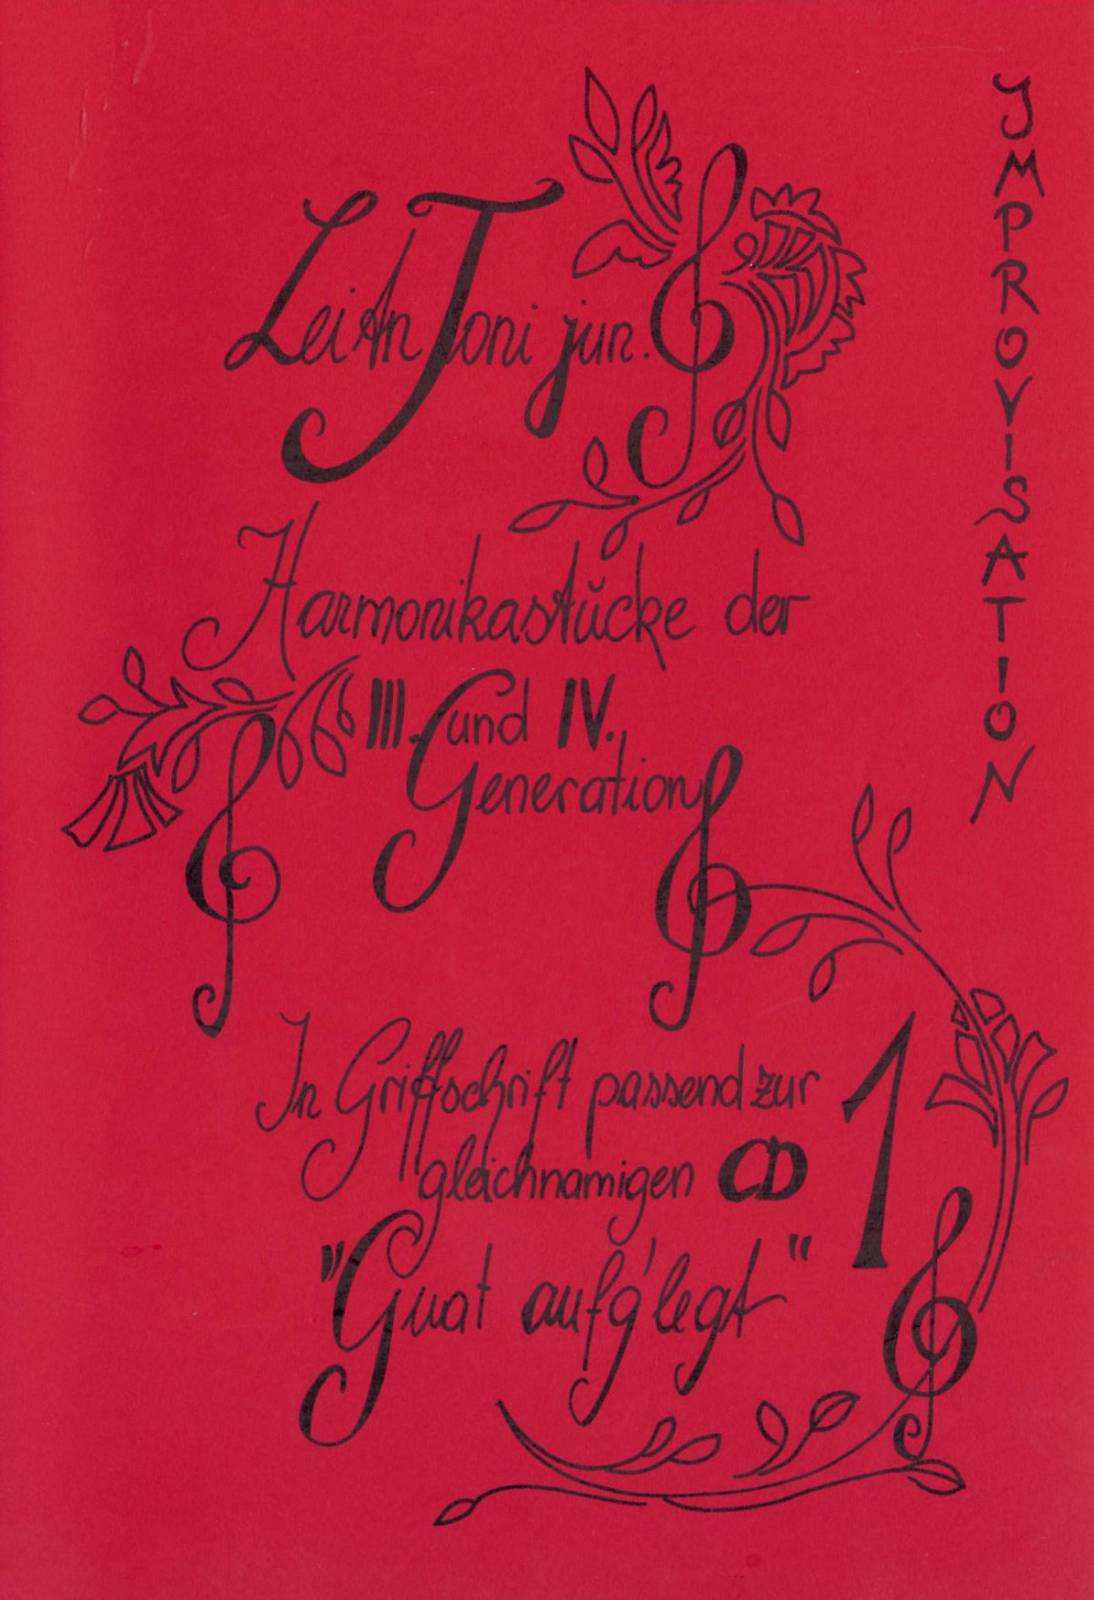 LeitnToni jun.
Harmonikastücke der
III. und IV.
Generation
In Griffschrift passend zur
gleichnamigen CD 1
"Guat aufg'legt"
IMPROVISATION